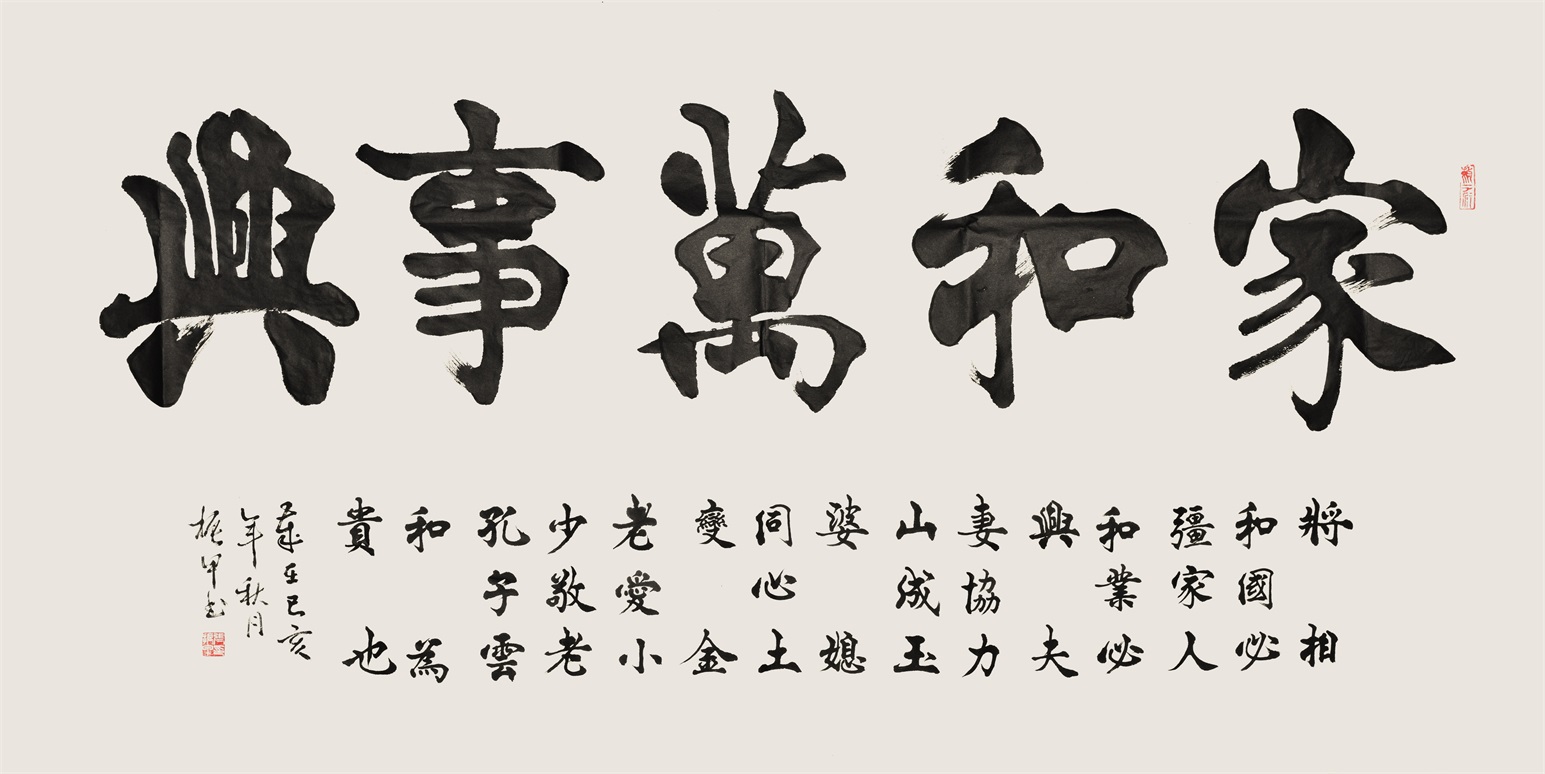 家和萬事興
將相
和國必
彊家人
和業必
興夫
妻協力
山成玉
婆媳
同心土
變金
老愛小
少敬老
孔子雲
和為
貴也
歲在已亥
年秋月
振甲書